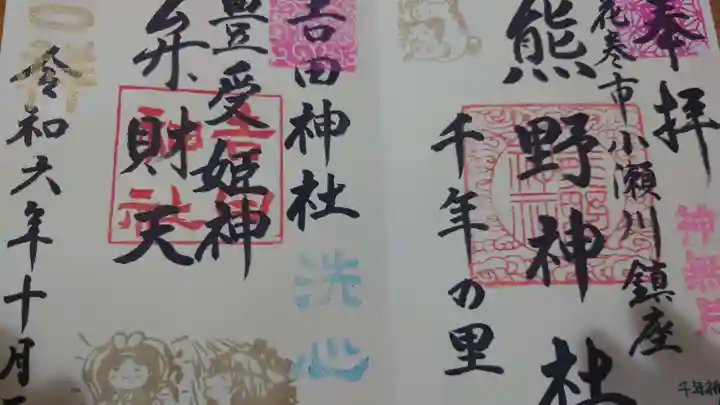 奉拝
花巻市小瀬川鎮座
神無月
熊野神社
千年の里
吉田神社
洗心
豊受姫神
弁財天
吉田神社
令和六年十月